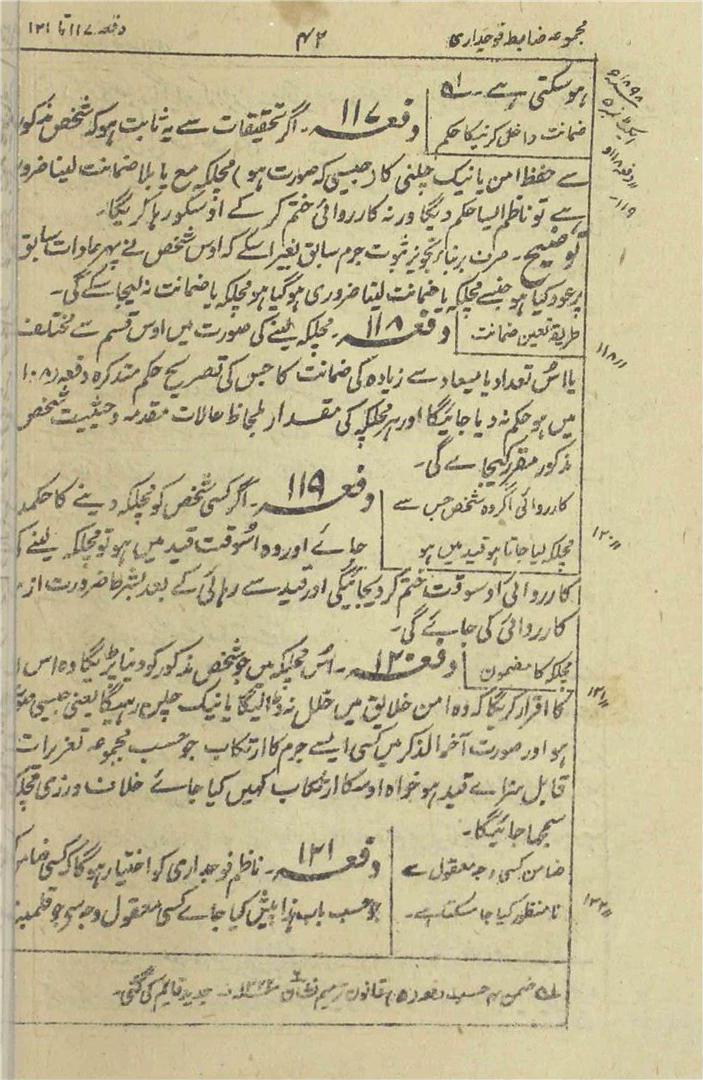 مجموعہ ضابطہ فوجداری ۴۲ دفعہ ۱۱۷ تا ۱۲۱
ہوسکتی ہے۔
ضمانت داخل کرنیکا حکم
دفعہ ۱۱۷۔ اگر تحقیقات سے یہ ثابت ہو کہ شخص مذکور
سے حفظ امن یا نیک چلنی کا (جیسی کہ صورت ہو) مچلکہ مع یا بلا ضمانت لینا ضرور
ہے تو ناظم ایسا حکم دیگا ورنہ کارروائی ختم کر کے اوسکو رہا کریگا۔
توضیح۔ صرف بر بنا تجویز ثبوت جرم سابق بغیر اسکے کہ اوس شخص نے پہر عادات سابق
پر عود کیا ہو جنسے مچلکہ یا ضمانت لینا ضروری ہوگیا ہو مچلکہ یا ضمانت نہ لیجا سکے گی۔
طریقہ تعین ضمانت
دفعہ ۱۱۸۔ مچلکہ لینے کی صورت میں اوس قسم سے مختلف
یا اس تعداد یا میعاد سے زیادہ کی ضمانت کا جس کی تصریح حکم متذکرہ دفعہ (۱۰۸
میں ہو حکم نہ دیا جائیگا اور ہر مچلکہ کی مقدار بلحاظ حالات مقدمہ و حیثیت شخص
مذکور مقرر کیجاے گی۔
کارروائی اگر وہ شخص جس سے
مچلکہ لیا جاتا ہو قید میں ہو
دفعہ ۱۱۹۔ اگر کسی شخص کو مچلکہ دینے کا حکم
جائے اور وہ اسوقت قید میں ہو تو مچلکہ لینے
کارروائی اوسوقت ختم کردیجائیگی اور قید سے رہائی کے بعد بشرط ضرورت از
کارروائی کی جاے گی۔
مچلکہ کا مضمون
دفعہ ۱۲۰۔ اس مچلکہ میں جو شخص مذکور کو دینا پڑیگا وہ اس
کا اقرار کریگا کہ وہ امن خلایق میں خلل نہ ڈالیگا یا نیک چلن رہیگا یعنی جیسی صورت
ہو اور صورت آخر الذکر میں کسی ایسے جرم کا ارتکاب جو حسب مجموعہ تعزیرات
قابل سزاے قید ہو خواہ اوسکا ارتکاب کہیں کیا جاے خلاف ورزی مچلکہ
سمجہا جائیگا۔
ضامن کسی وجہ معقول سے
نامنظور کیا جا سکتا ہے۔
دفعہ ۱۲۱۔ ناظم فوجداری کو اختیار ہوگا کہ کسی ضامن
جو حسب باب ہذا پیش کیا جاے کسی معقول وجہ سے جو قلمبند
ضمن حسب دفعہ (۵) قانون ترمیم نشان جدید قایم کی گئی۔
۱۱۸//
۱۲۰//
۱۲۱//
۱۲۲//